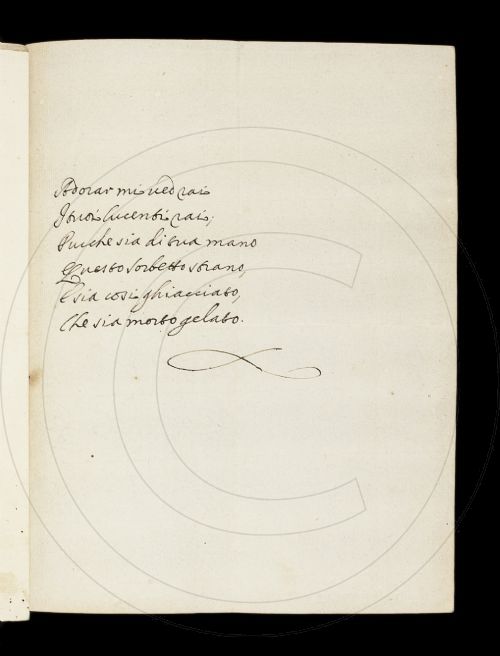 Adorar mi ved rai
I tuoi lucenti rai;
Pur che sia di tua mano
Questo sorbetto strano,
E sia così ghiacciato,
Che sia morto gelato.